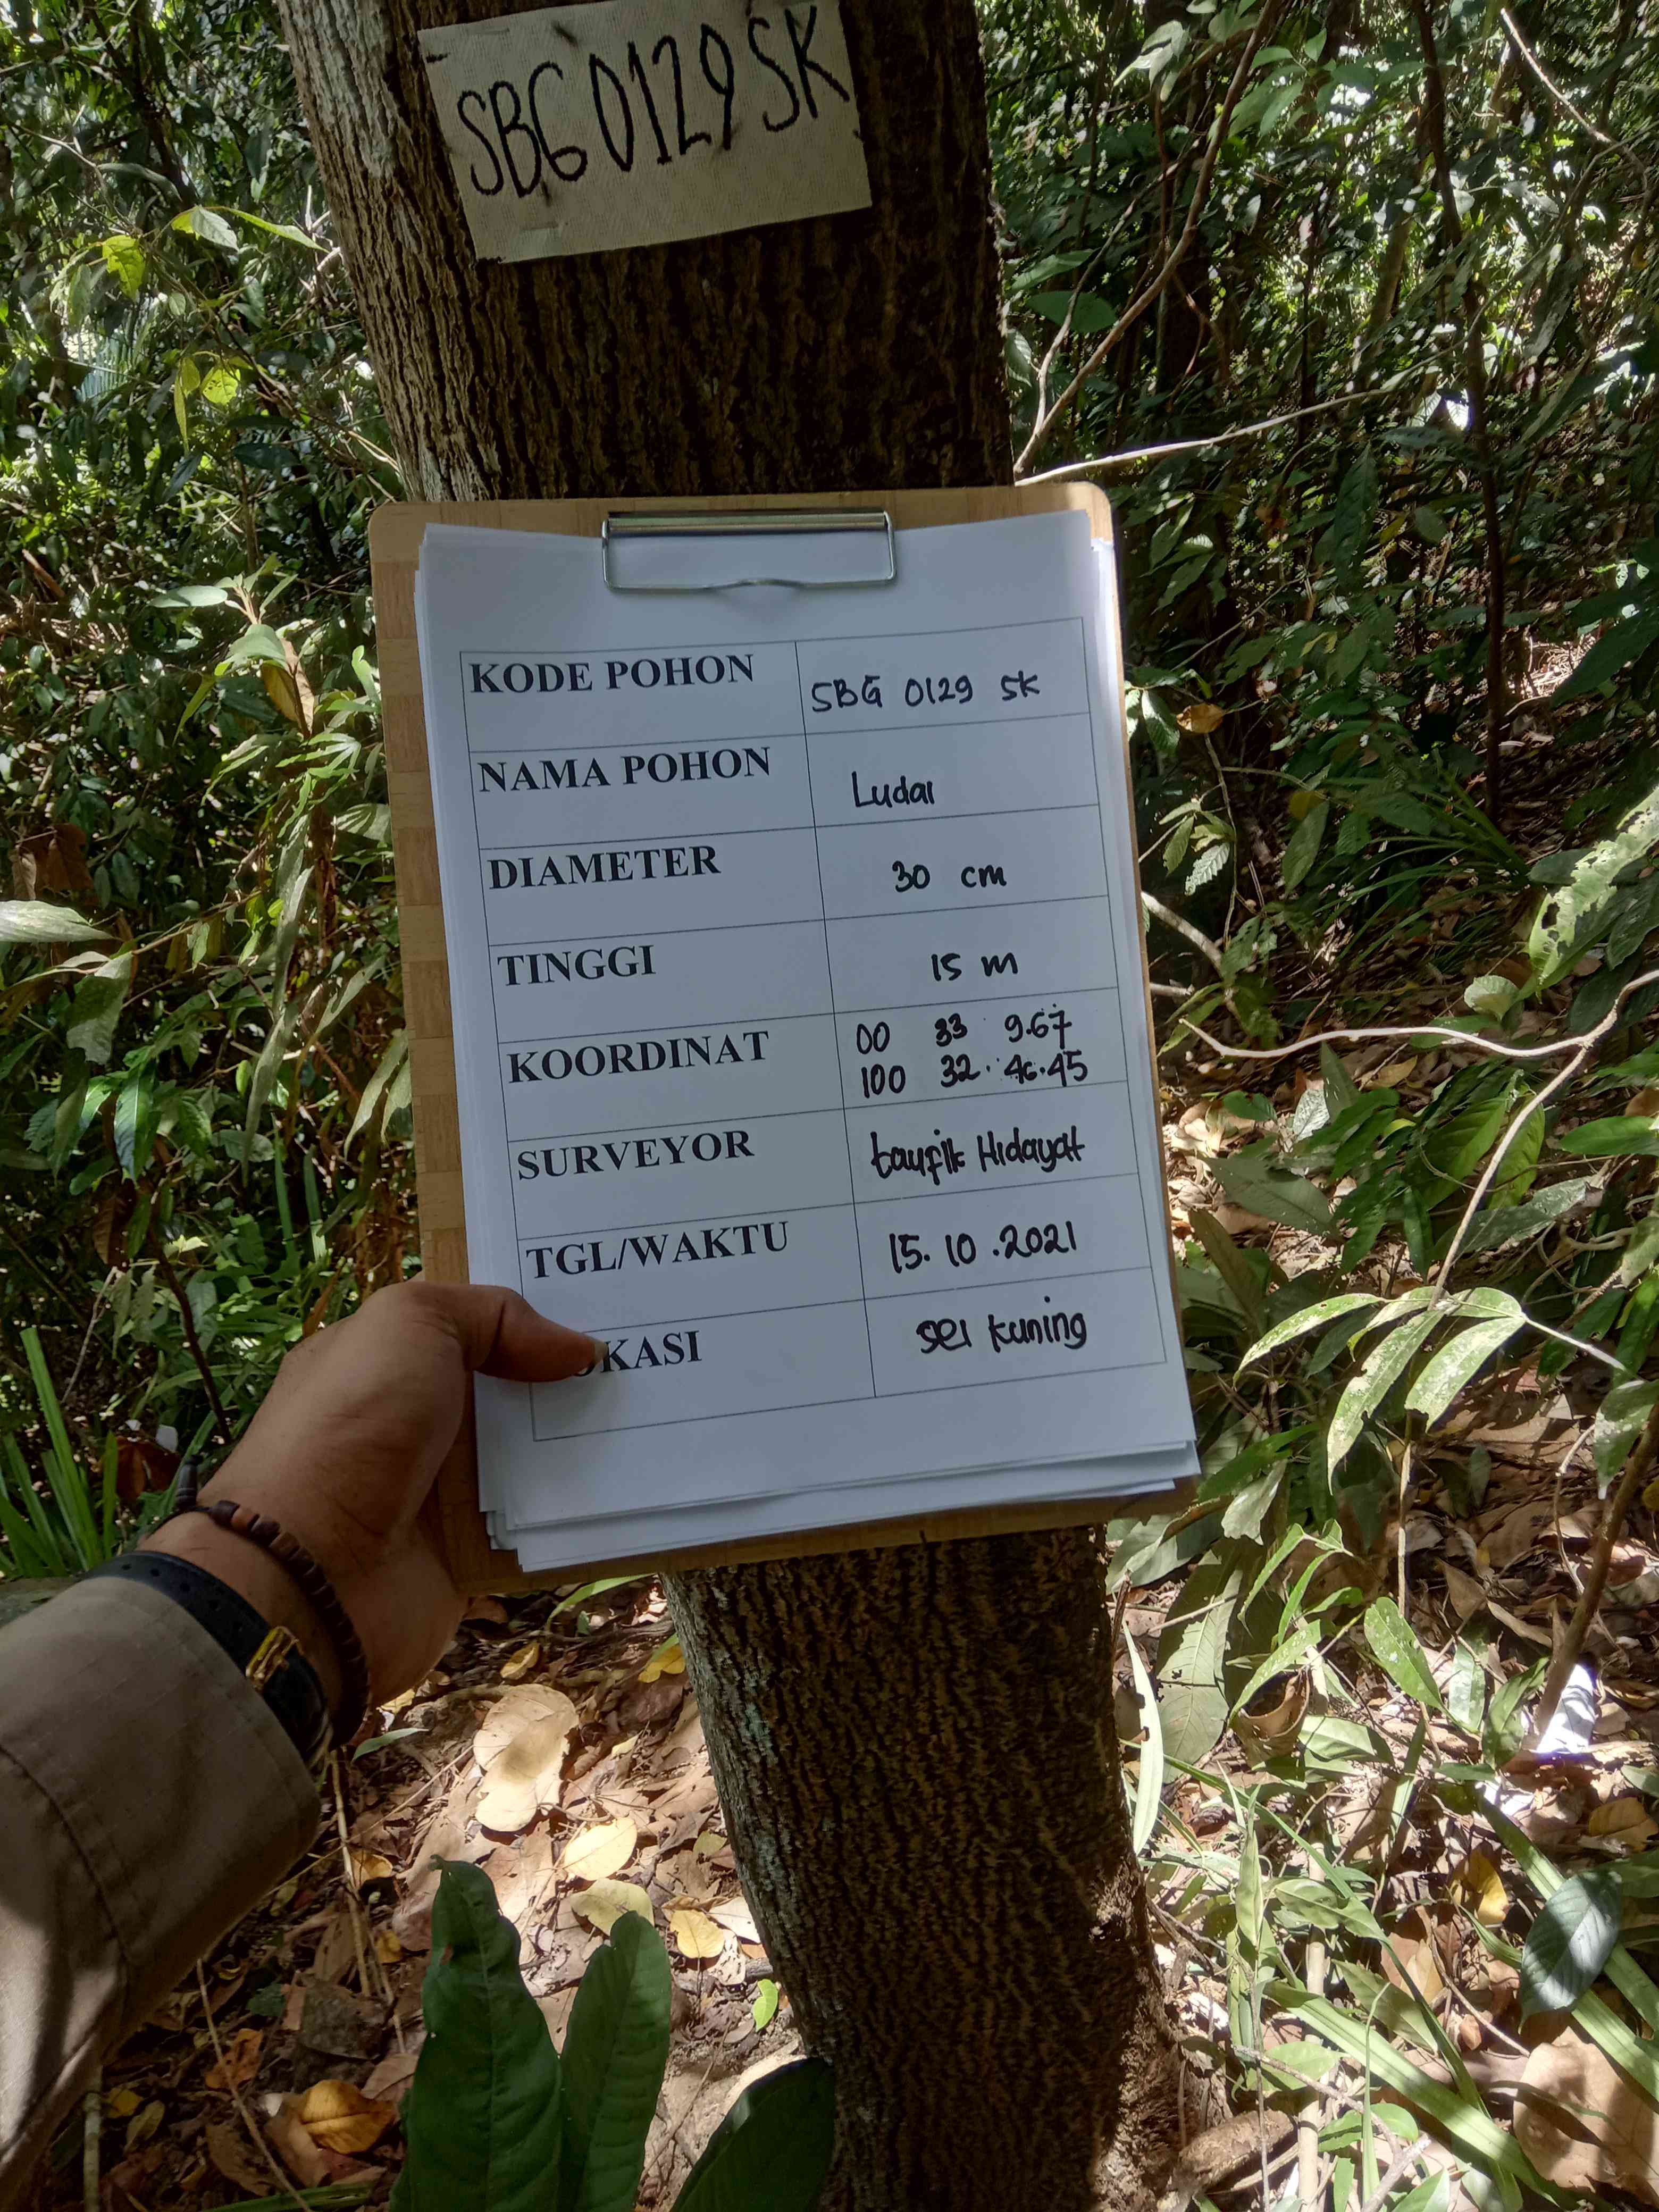 SBG 0129 SK
KODE POHON SBG 0129 SK
NAMA POHON Ludai
DIAMETER 30 cm
TINGGI 15 m
KOORDINAT 00 33 9.67
100 32 46.45
SURVEYOR taufik Hidayat
TGL/WAKTU 15.10.2021
OKASI sei kuning